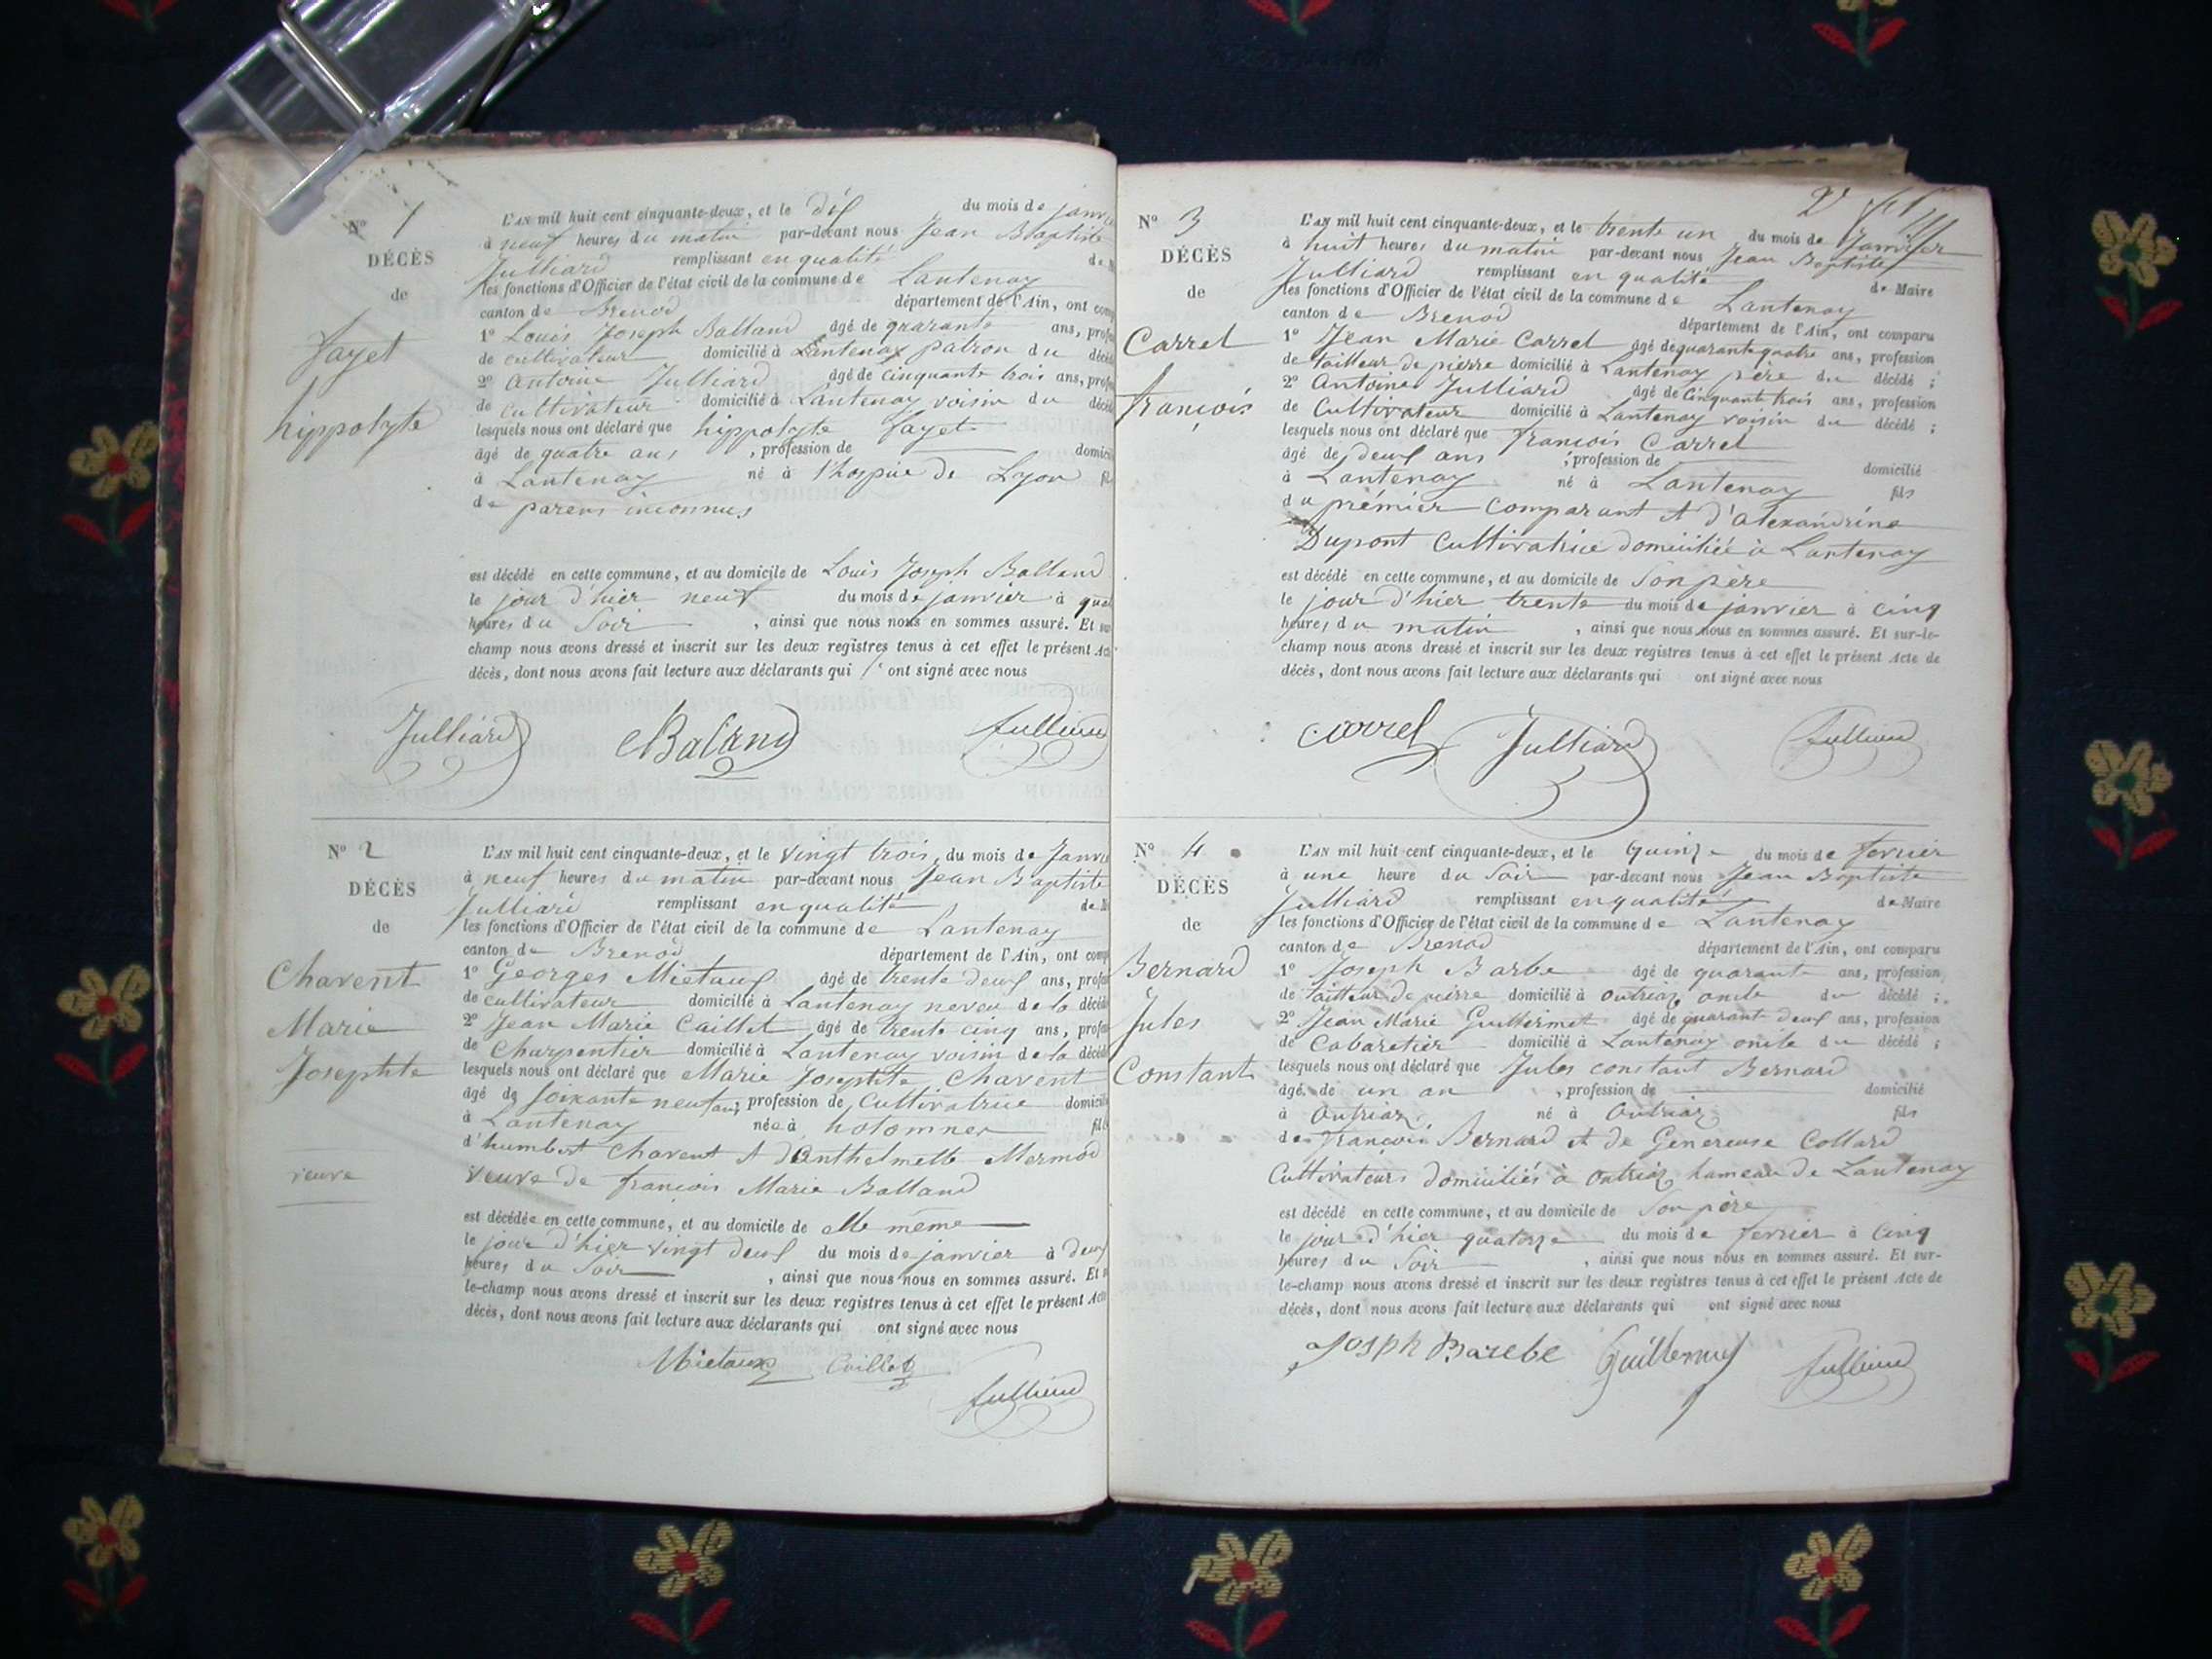 N° 1
DÉCÈS
de
fayet
hippolyte
L'AN mil huit cent cinquante-deux, et le dix du mois de janvi
à neuf heures du matin par-devant nous Jean Baptiste
Julliard remplissant en qualité de M
les fonctions d'Officier de l'état civil de la commune de Lantenay
canton de Brenod département de l'Ain, ont comp
1° Louis Joseph Balland âgé de quarante ans, profes
de cultivateur domicilié à Lantenay patron du décéd
2° Antoine Julliard âgé de cinquante trois ans, profes
de cultivateur domicilié à Lantenay voisin du décéd
lesquels nous ont déclaré que hippolyte fayet
âgé de quatre ans , profession de domici
à Lantenay né à l'hospice de Lyon fil
de parens inconnus
est décédé en cette commune, et au domicile de Louis Joseph Balland
le jour d'hier neuf du mois de janvier à quat
heures du soir , ainsi que nous nous en sommes assuré. Et sur
champ nous avons dressé et inscrit sur les deux registres tenus à cet effet le présent Acte
décès, dont nous avons fait lecture aux déclarants qui ont signé avec nous
Julliard Baland Julliard
N° 2
DÉCÈS
de
Chavent
Marie
Josephte
veuve
L'AN mil huit cent cinquante-deux, et le vingt trois du mois de Janvi
à neuf heures du matin par-devant nous Jean Baptiste
Julliard remplissant en qualité de M
les fonctions d'Officier de l'état civil de la commune de Lantenay
canton de Brenod département de l'Ain, ont comp
1° Georges Mietaux âgé de trente deux ans, profes
de cultivateur domicilié à Lantenay neveu de la décéd
2° Jean Marie Caillet âgé de trente cinq ans, profes
de Charpentier domicilié à Lantenay voisin de la décéd
lesquels nous ont déclaré que Marie Josephte Chavent
âgé de soixante neuf ans, profession de Cultivatrice domicili
à Lantenay née à hotonnes fill
d'humbert Chavent et d'Anthelmette Mermod
veuve de françois Marie Balland
est décédée en cette commune, et au domicile de elle même
le jour d'hier vingt deux du mois de janvier à deux
heures du soir , ainsi que nous nous en sommes assuré. Et s
le-champ nous avons dressé et inscrit sur les deux registres tenus à cet effet le présent Acte
décès, dont nous avons fait lecture aux déclarants qui ont signé avec nous
Mietaux Caillet
Julliard
2
N° 3
DÉCÈS
de
Carrel
françois
L'AN mil huit cent cinquante-deux, et le trente un du mois de Janvier
à huit heures du matin par-devant nous Jean Baptiste
Julliard remplissant en qualité de Maire
les fonctions d'Officier de l'état civil de la commune de Lantenay
canton de Brenod département de l'Ain, ont comparu
1° Jean Marie Carrel âgé de quarante quatre ans, profession
de tailleur de pierre domicilié à Lantenay père du décédé ;
2° Antoine Julliard âgé de Cinquante trois ans, profession
de Cultivateur domicilié à Lantenay voisin du décédé ;
lesquels nous ont déclaré que françois Carrel
âgé de deux ans , profession de domicilié
à Lantenay né à Lantenay fils
du prémier Comparant et d'Alexandrine
Dupont Cultivatrice domiciliée à Lantenay
est décédé en cette commune, et au domicile de Son père
le jour d'hier trente du mois de janvier à cinq
heures du matin , ainsi que nous nous en sommes assuré. Et sur-le-
champ nous avons dressé et inscrit sur les deux registres tenus à cet effet le présent Acte de
décès, dont nous avons fait lecture aux déclarants qui ont signé avec nous
Carrel Julliard Julliard
N° 4
DÉCÈS
de
Bernard
Jules
Constant
L'AN mil huit cent cinquante-deux, et le Quinze du mois de fevrier
à une heure du soir par-devant nous Jean Baptiste
Julliard remplissant en qualité de Maire
les fonctions d'Officier de l'état civil de la commune de Lantenay
canton de Brenod département de l'Ain, ont comparu
1° Joseph Barbe âgé de quarante ans, profession
de tailleur de pierre domicilié à Outriaz oncle du décédé ;
2° Jean Marie Guillermet âgé de quarante deux ans, profession
de Cabaretier domicilié à Lantenay oncle du décédé ;
lesquels nous ont déclaré que Jules constant Bernard
âgé de un an , profession de domicilié
à Outriaz né à Outriaz fils
de françois Bernard et de Genereuse Collard
Cultivateurs domiciliés à Outriaz hameau de Lantenay
est décédé en cette commune, et au domicile de Son père
le jour d'hier quatorze du mois de fevrier à Cinq
heures du soir , ainsi que nous nous en sommes assuré. Et sur-
le-champ nous avons dressé et inscrit sur les deux registres tenus à cet effet le présent Acte de
décès, dont nous avons fait lecture aux déclarants qui ont signé avec nous
Josph Barebe Guillermet Julliard